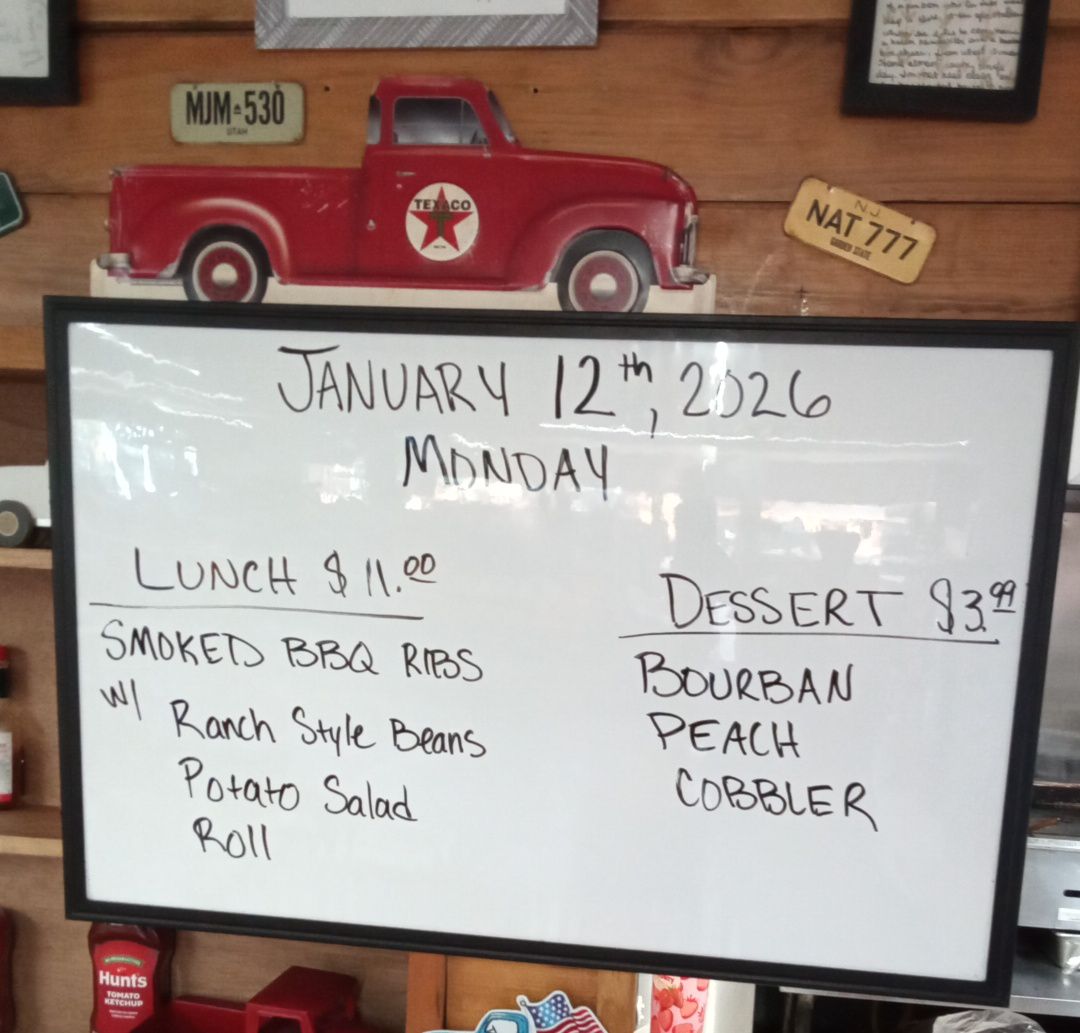 MJM 530
UTAH
TEXACO
N.J.
NAT 777
GARDEN STATE
JANUARY 12th, 2026
MONDAY
LUNCH $11.00
SMOKED BBQ RIBS
W/
Ranch Style Beans
Potato Salad
Roll
DESSERT $3.99
BOURBAN
PEACH
COBBLER
Hunt's
TOMATO
KETCHUP